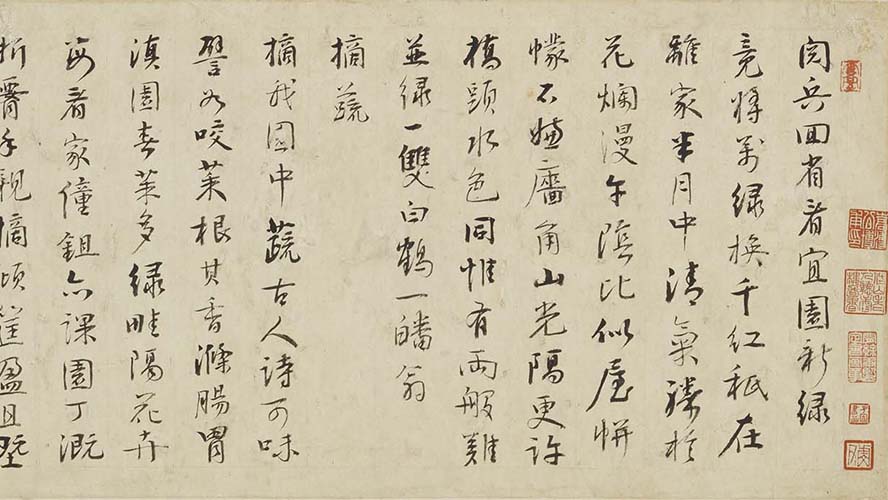 閱兵回省看宜園新綠
竟將萬綠換千紅秖在
離家半月中清氣勝於
花爛漫午陰比似屋帡
幪不嫌廧角山光隔更許
橋頭水色同惟有兩般難
並綠一雙白鶴一皤翁
摘蔬
摘我園中蔬古人詩可味
譬如咬菜根其香滌腸胃
滇園春菜多綠畦隔花卉
每看家僮鉏亦課園丁溉
新霽手親摘頃筐盈且塈